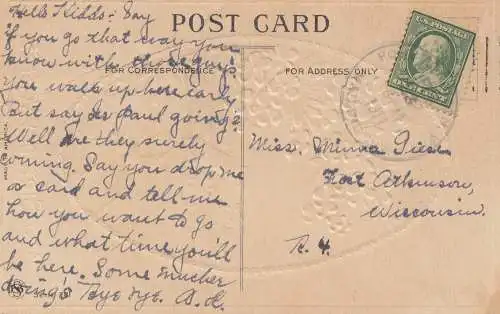 POST CARD
FOR CORRESPONDENCE
FOR ADDRESS ONLY
U.S. POSTAGE
Hello Kiddo: Say
if you go that way you
know with those guys
you walk up here early
But say is Paul going?
Well are they surely
coming. Say you drop me
a card and tell me
how you want to go
and what time you'll
be here. Some
doing's Bye bye. A.K.
Miss. Minna
Fort Atkinson,
Wisconsin.
R. 4.